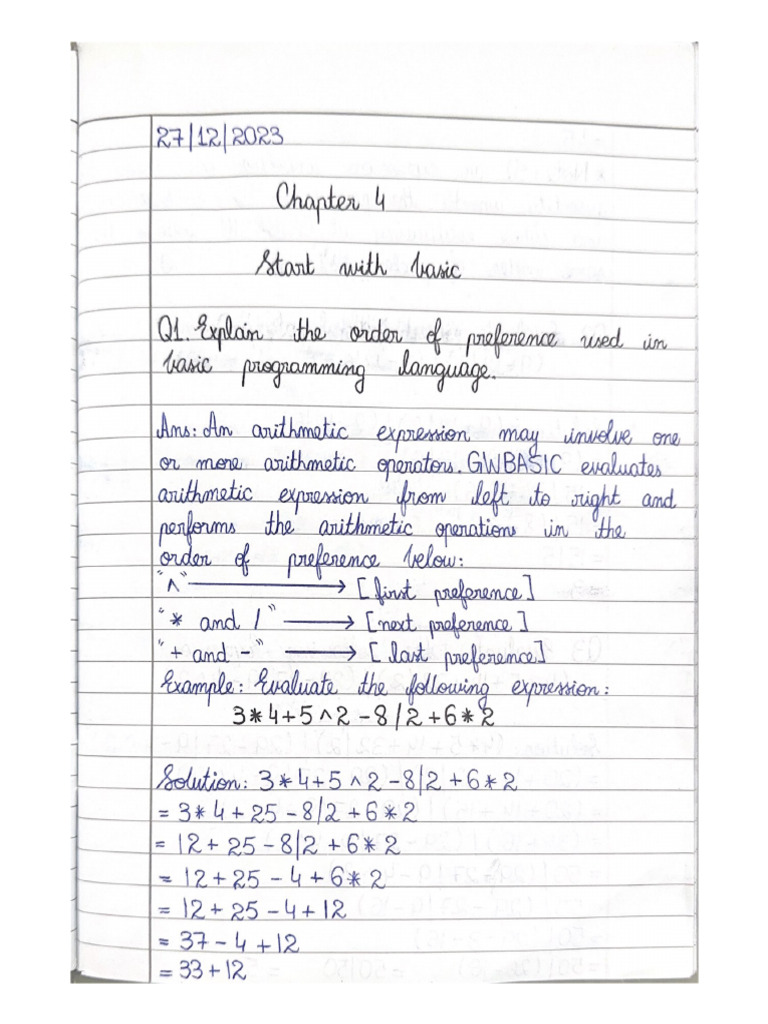 27/12/2023
Chapter 4
Start with basic
Q1. Explain the order of preference used in
basic programming language.
Ans: An arithmetic expression may involve one
or more arithmetic operators. GWBASIC evaluates
arithmetic expression from left to right and
performs the arithmetic operations in the
order of preference below:
"^" → [first preference]
"* and /" → [next preference]
"+ and -" → [last preference]
Example: Evaluate the following expression:
3*4+5^2-8/2+6*2
Solution: 3*4+5^2-8/2+6*2
= 3*4+25-8/2+6*2
= 12+25-8/2+6*2
= 12+25-4+6*2
= 12+25-4+12
= 37-4+12
= 33+12